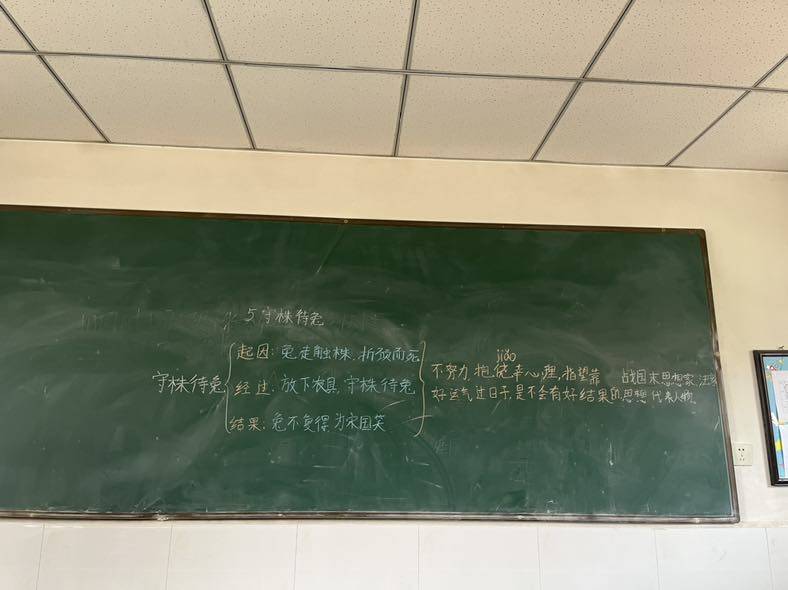 5 守株待兔
守株待兔
起因：兔走触株，折颈而死
经过：放下农具，守株待兔
结果：兔不复得，为宋国笑
jiǎo
不努力，抱侥幸心理，指望靠
好运气过日子，是不会有好结果的
战国末思想家，法家
思想代表人物